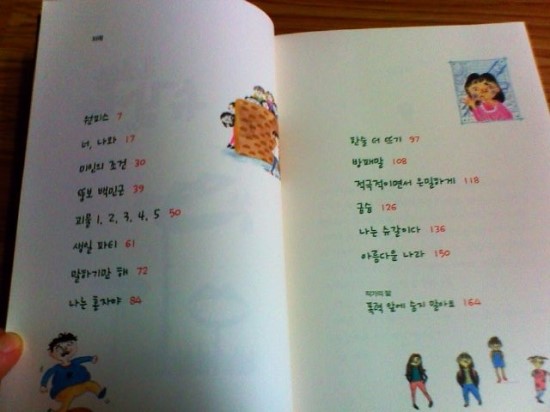 차례
원피스 7
너, 나와 17
미인의 조건 30
땅보 백민군 39
피플 1, 2, 3, 4, 5 50
생일 파티 61
말하기만 해 72
나는 혼자야 84
한술 더 뜨기 97
방패말 108
적극적이면서 은밀하게 118
궁승 126
나는 슈갈이다 136
아름다운 나라 150
작가의 말
폭력 앞에 숨지 말아요 164